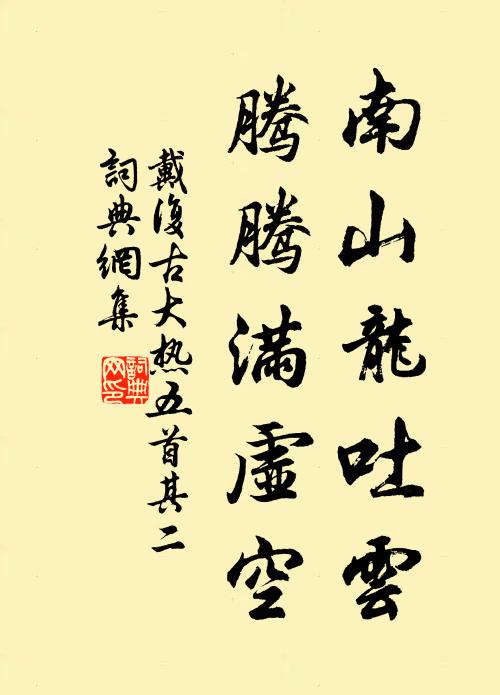 南山龍吐雲
騰騰滿虛空
戴復古大热五首其二
詞典網集
詞典
网印